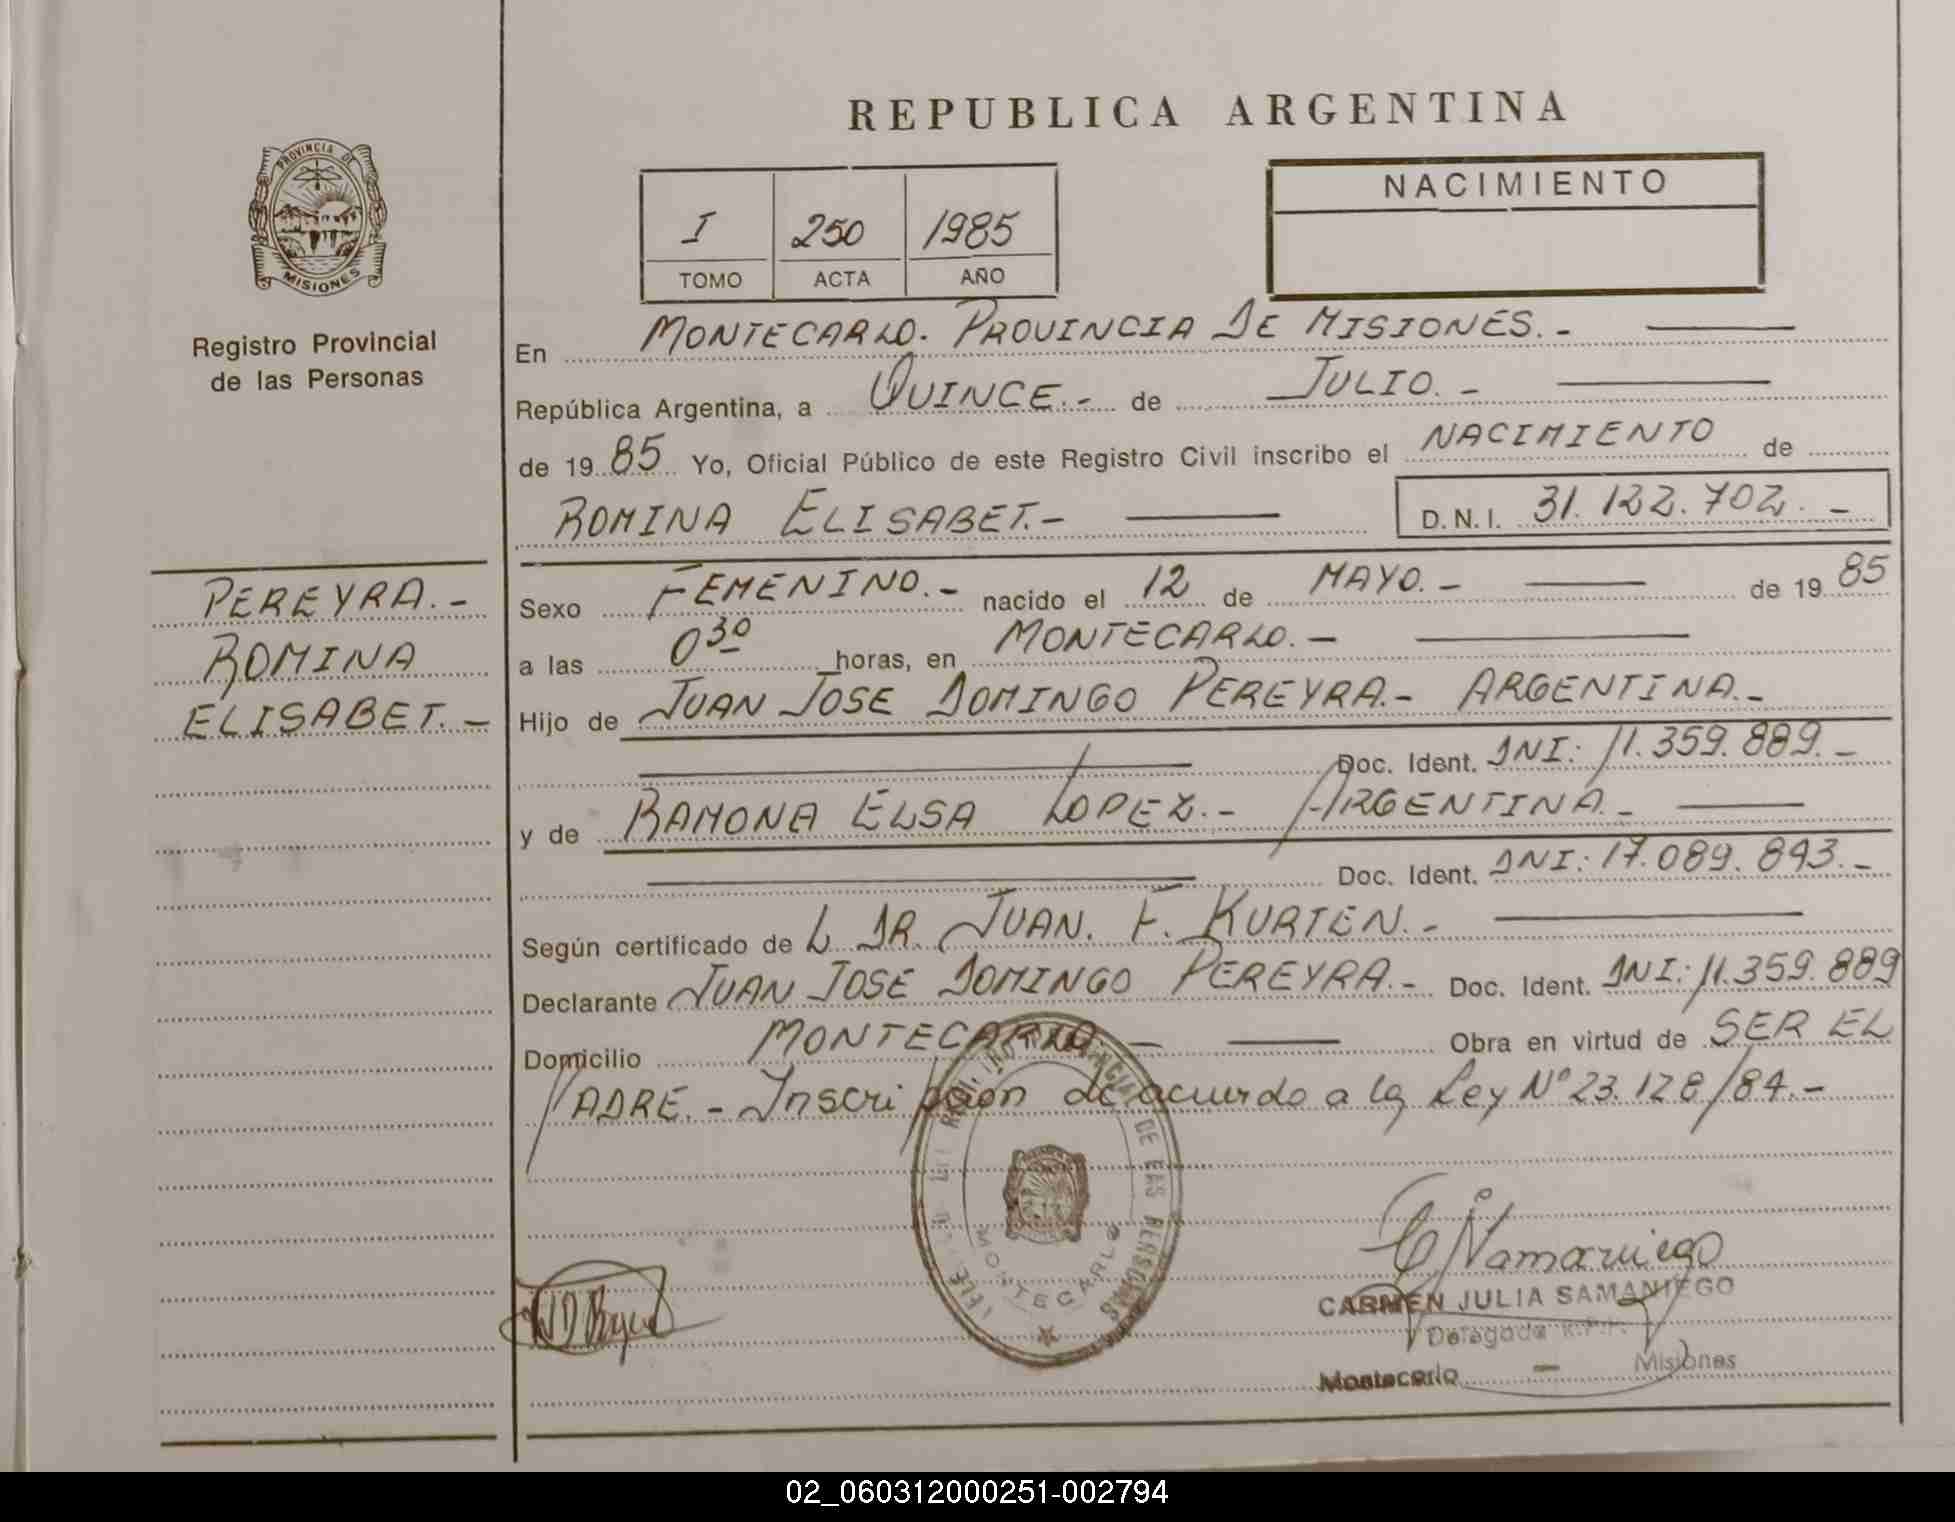 REPUBLICA ARGENTINA
PROVINCIA DE
MISIONES
Registro Provincial
de las Personas
I 250 1985
TOMO ACTA AÑO
NACIMIENTO
En MONTECARLO. PROVINCIA DE MISIONES.-
República Argentina, a QUINCE.- de JULIO.-
de 19 85 Yo, Oficial Público de este Registro Civil inscribo el NACIMIENTO de
ROMINA ELISABET.- D.N.I. 31.122.702.-
PEREYRA.-
ROMINA
ELISABET.-
Sexo FEMENINO.- nacido el 12 de MAYO.- de 19 85
a las 0 30 horas, en MONTECARLO.-
Hijo de JUAN JOSE DOMINGO PEREYRA.- ARGENTINA.-
Doc. Ident. DNI: 11.359.889.-
y de RAMONA ELSA LOPEZ.- ARGENTINA.-
Doc. Ident. DNI: 17.089.893.-
Según certificado de L DR. JUAN. F. KURTEN.-
Declarante JUAN JOSE DOMINGO PEREYRA.- Doc. Ident. DNI: 11.359.889
Domicilio MONTECARLO.- Obra en virtud de SER EL
PADRE.- Inscripcion de acuerdo a la Ley Nº 23.128/84.-
DE LAS PERSONAS
MONTECARLO
CARMEN JULIA SAMANIEGO
Delegada R.P.P.
Montecarlo - Misiones
02_060312000251-002794